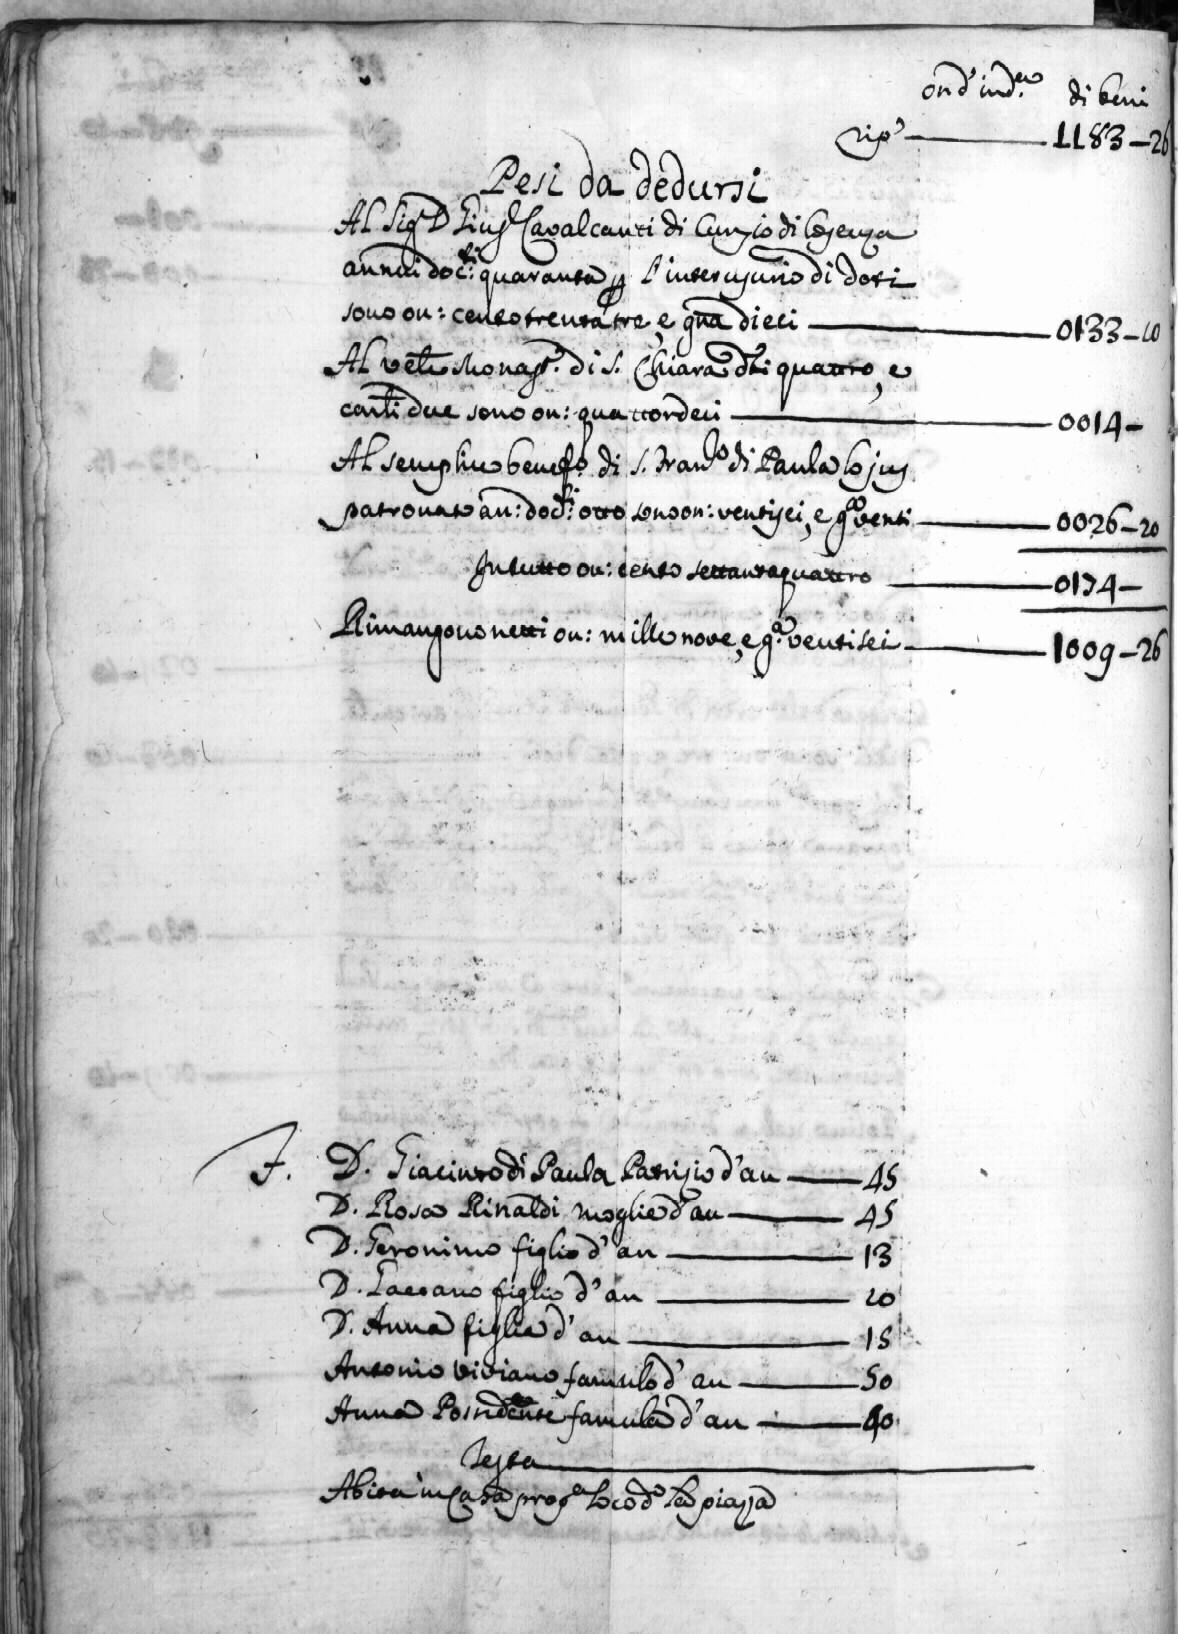 on: d'ind.a di beni
rip.o 1183-26
Pesi da dedursi
Al Sig.r D. Cavalcanti di Cunzio di Cosenza
annui doc.ti quaranta p l'interusurio di doti
sono on: cento trenta tre, e gna dieci 0133-10
Al Ven.le Monast.o di S. Chiara d.ti quattro, e
carlini due sono on: quattordeci 0014-
Al semplice benef.o di S. Fran.co di Paula Jus
patronato an: doc.ti otto sono on: ventisei, e g.a venti 0026-20
In tutto on: cento settantaquattro 0174-
Rimangono netti on: mille nove, e g.a ventisei 1009-26
J. D. Giacinto di Paula Patrizio d'an 45
D. Rosa Rinaldi moglie d'an 45
D. Geronimo figlio d'an 13
D. Gaetano figlio d'an 10
D. Anna figlia d'an 15
Antonio Viviano famulo d'an 50
Anna famula d'an 40
Testa
Abita in Casa prop.a loco d.o la piazza